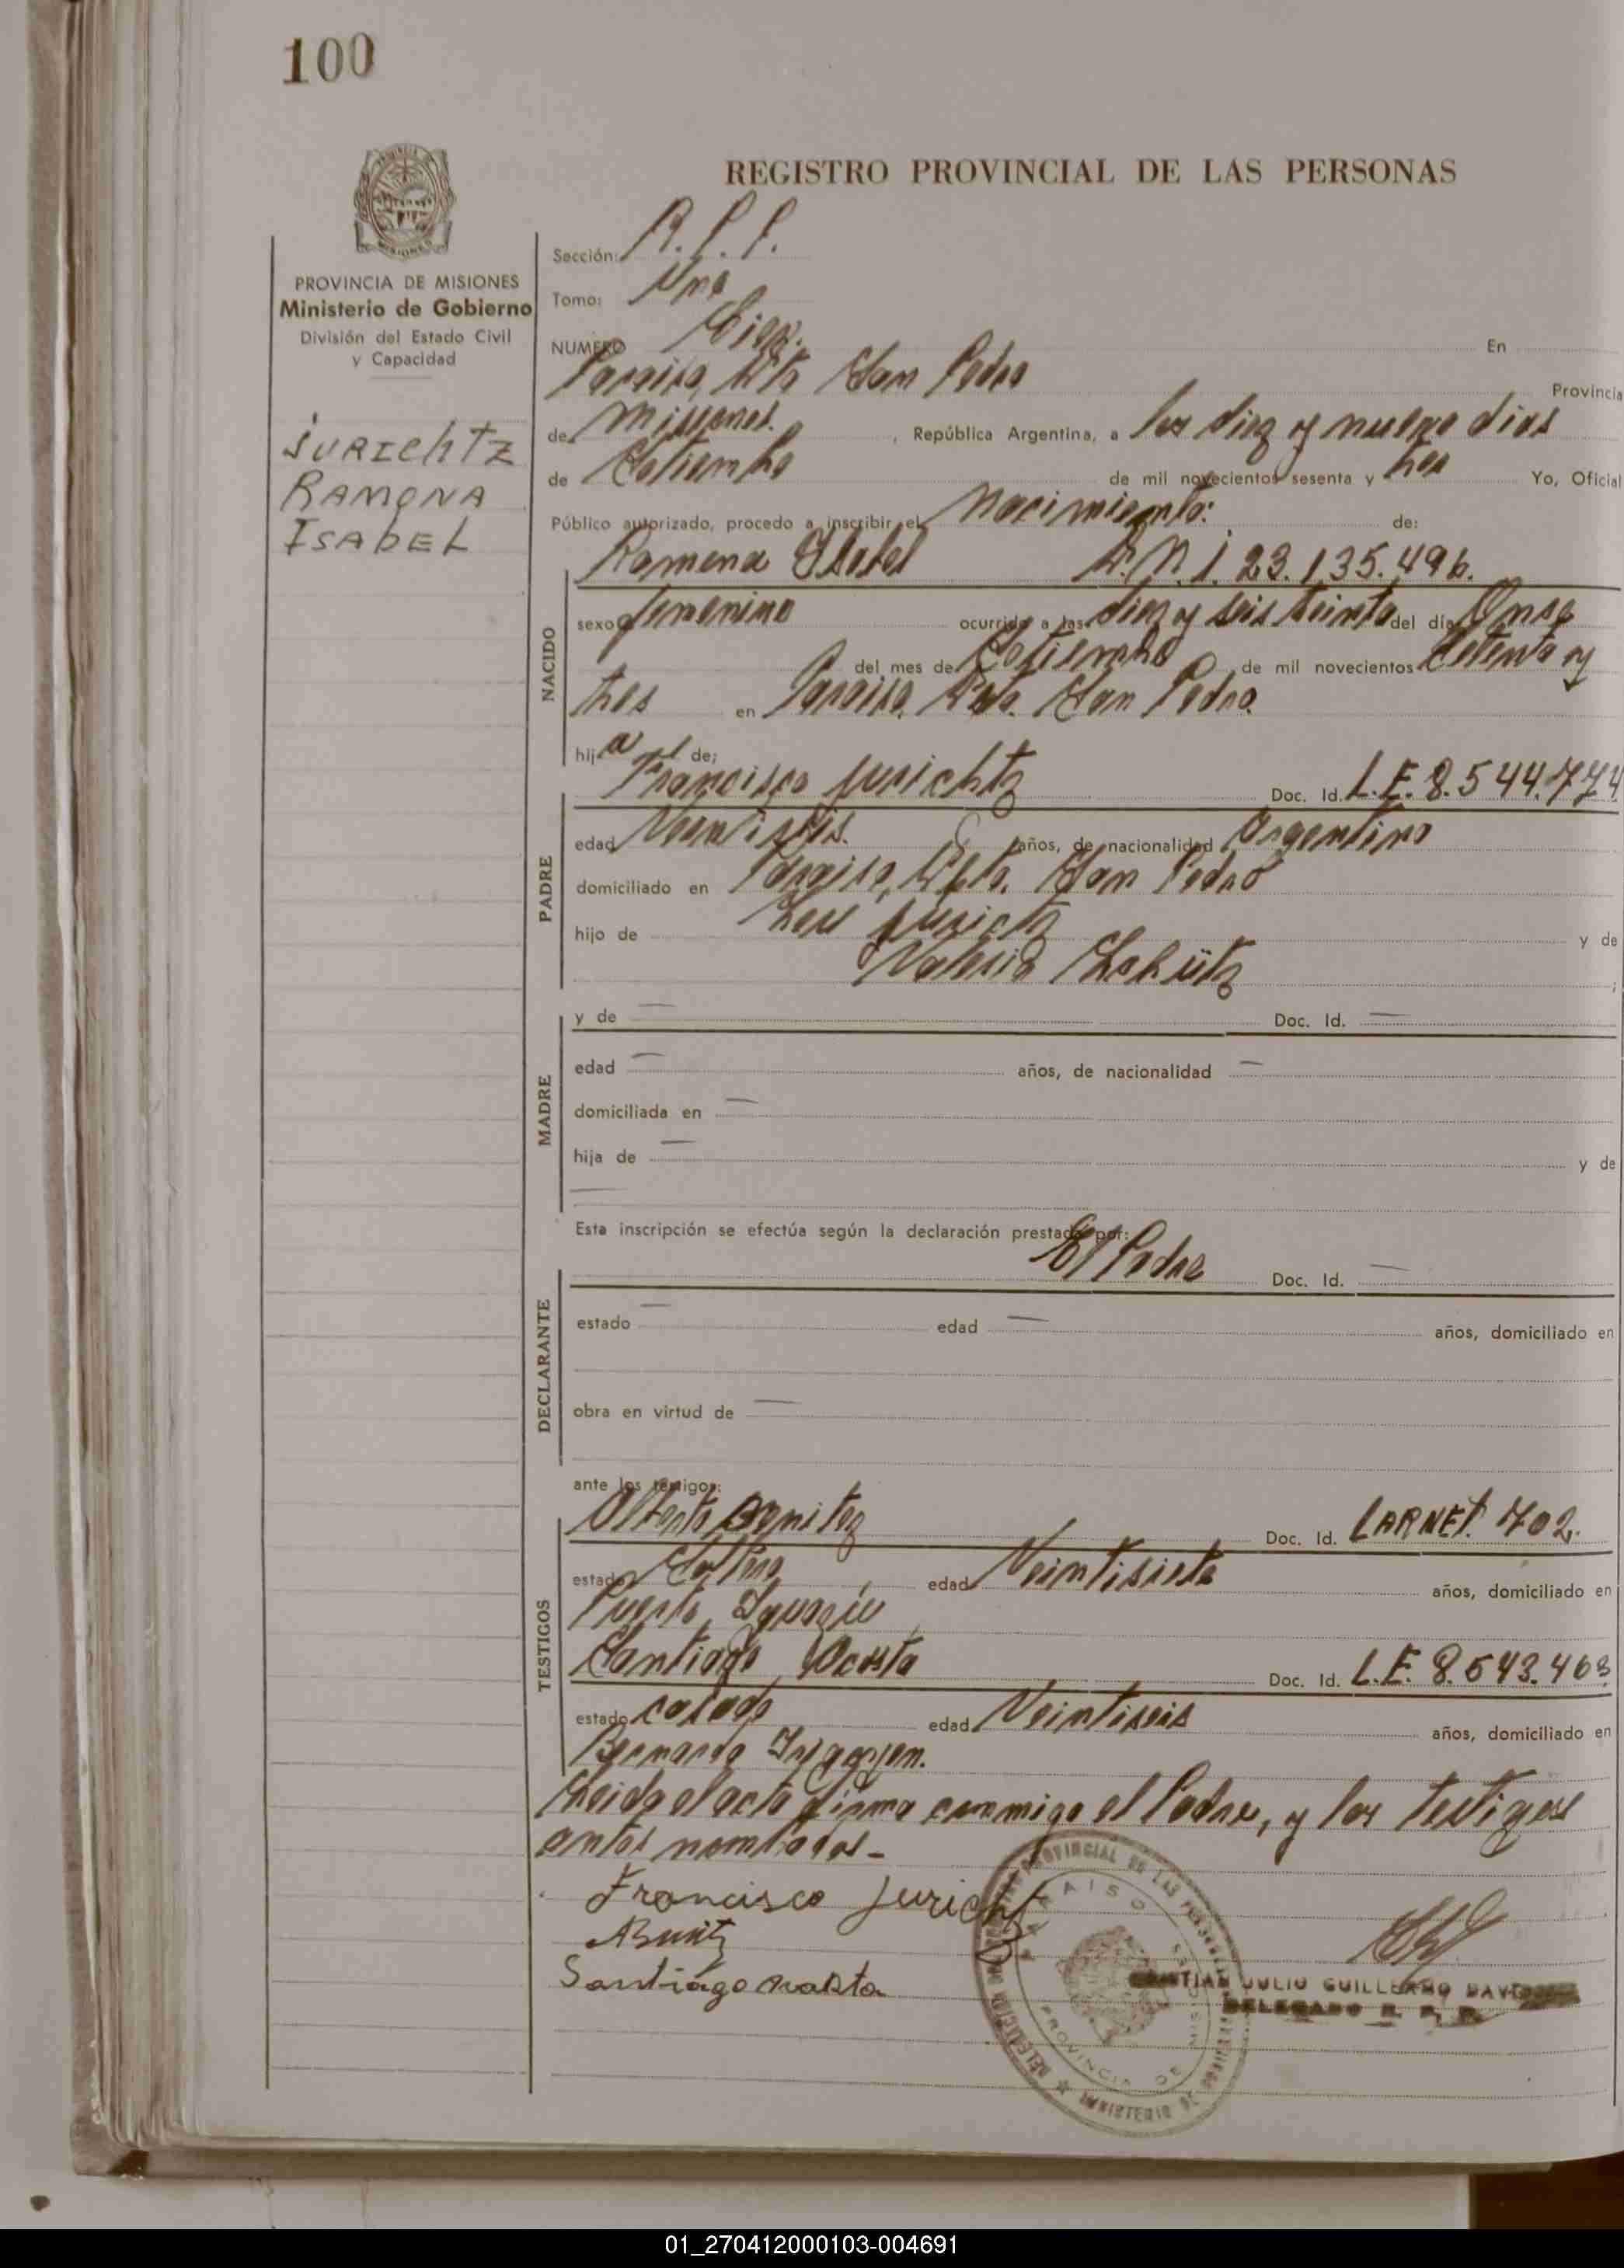 100
REGISTRO PROVINCIAL DE LAS PERSONAS
PROVINCIA DE MISIONES
Ministerio de Gobierno
División del Estado Civil
y Capacidad
JURICHTZ
RAMONA
ISABEL
Sección: R. P. P.
Tomo: Uno
NUMERO Cien. En
Paraiso, Dto San Pedro Provincia
de Misiones. , República Argentina, a los diez y nueve dias
de Setiembre de mil novecientos sesenta y tres Yo, Oficial
Público autorizado, procedo a inscribir el Nacimiento: de:
Ramona Isabel D.N.I. 23.135.496.
NACIDO
sexo femenino ocurrido a las diez y seis treinta del día Onse
del mes de Setiembre de mil novecientos setenta y
tres en Paraiso, Dpto. San Pedro.
hija de;
Francisco Jurichtz Doc. Id. L.E. 8.544.774
PADRE
edad Veintiseis. años, de nacionalidad Argentino
domiciliado en Paraiso, Dpto. San Pedro
hijo de José Juricht y de
Valeria Schütz ;
MADRE
y de — Doc. Id. —
edad — años, de nacionalidad —
domiciliada en —
hija de — y de
—
Esta inscripción se efectúa según la declaración prestada por:
El Padre Doc. Id. —
DECLARANTE
estado — edad — años, domiciliado en
obra en virtud de —
ante los testigos:
TESTIGOS
Alberto Benitez Doc. Id. CARNET. 702.
estado Soltero edad Veintisiete años, domiciliado en
Puerto Iguazú
Santiago Acosta Doc. Id. L.E. 8.543.463
estado casado edad Veintiseis años, domiciliado en
Bernardo Irigoyen.
Leida el acta firma conmigo el Padre, y los testigos
antes nombrados -
Francisco Jurichtz
Santiago
DELEGACION DEL REGISTRO PROVINCIAL DE LAS PERSONAS
PARAISO
PROVINCIA DE MISIONES
MINISTERIO DE
JULIO GUILLERMO
DELEGADO R. P. P.
01_270412000103-004691